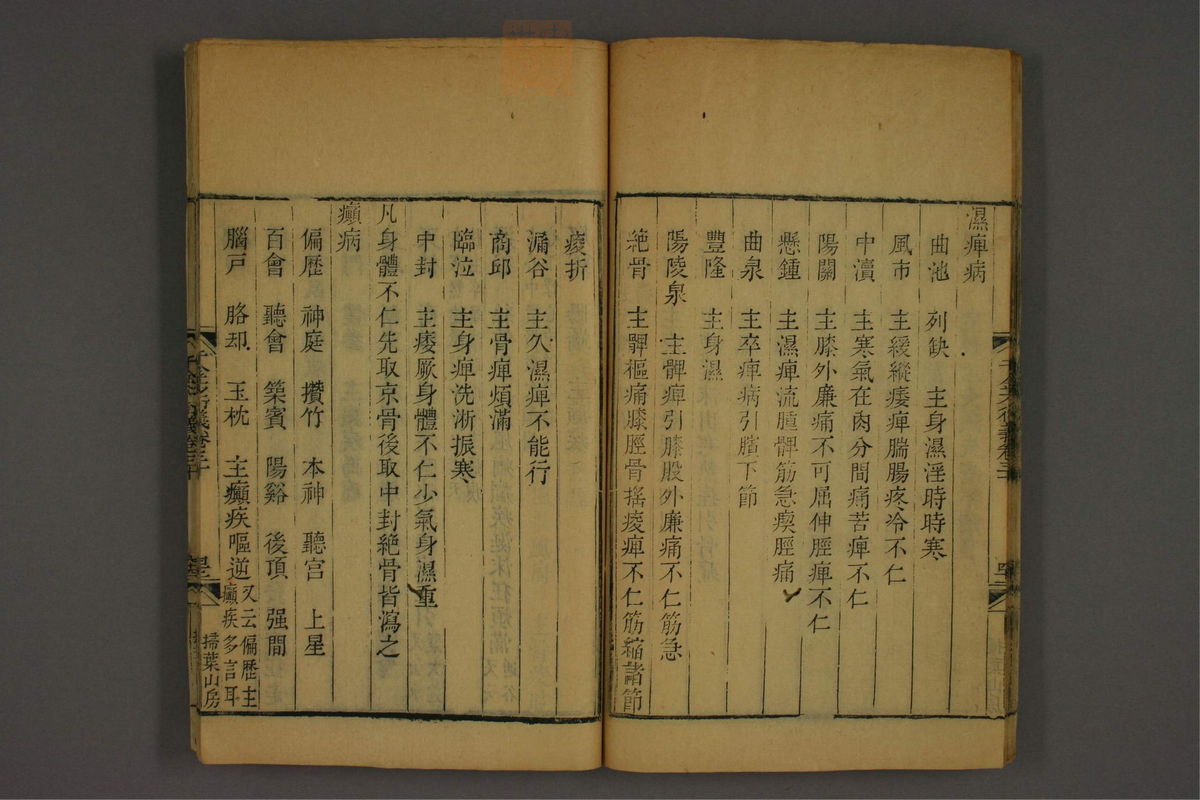 濕痺病
曲池　列缺　主身濕淫時時寒
風市　主緩縱痿痺腨腸疼冷不仁
中瀆　主寒氣在肉分間痛苦痺不仁
陽關　主膝外廉痛不可屈伸脛痺不仁
懸鍾　主濕痺流腫髀筋急瘈脛痛
曲泉　主卒痺病引臏下節
豐隆　主身濕
陽陵泉　主髀痺引膝股外廉痛不仁筋急
絶骨　主髀樞痛膝脛骨搖痠痺不仁筋縮諸節
痠折
漏谷　主久濕痺不能行
商邱　主骨痺煩滿
臨泣　主身痺洗淅振寒
中封　主痿厥身體不仁少氣身濕重
凡身體不仁先取京骨後取中封絶骨皆瀉之
癲病
偏歷　神庭　攢竹　本神　聽宮　上星
百會　聽會　築賓　陽谿　後頂　强間
腦戸　胳却　玉枕　主癲疾嘔逆又云偏歷主癲疾多言耳
掃葉山房